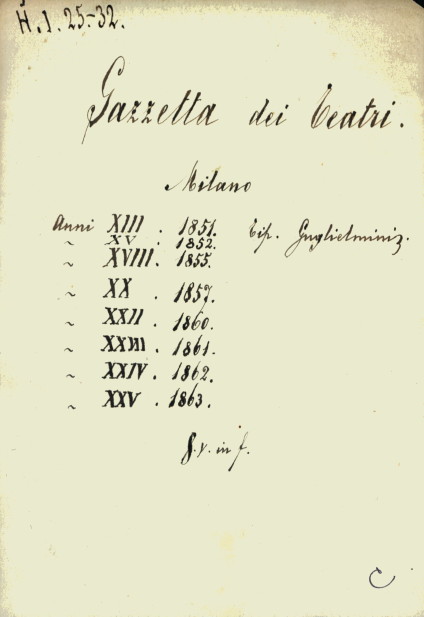 H.1.25-32.
Gazzetta dei Teatri.
Milano
Anni XIII . 1851. Tip. Guglielmini
~ XV . 1852.
~ XVIII . 1855.
~ XX . 1857.
~ XXII . 1860.
~ XXIII . 1861.
~ XXIV . 1862.
~ XXV . 1863.
8. v. in f.